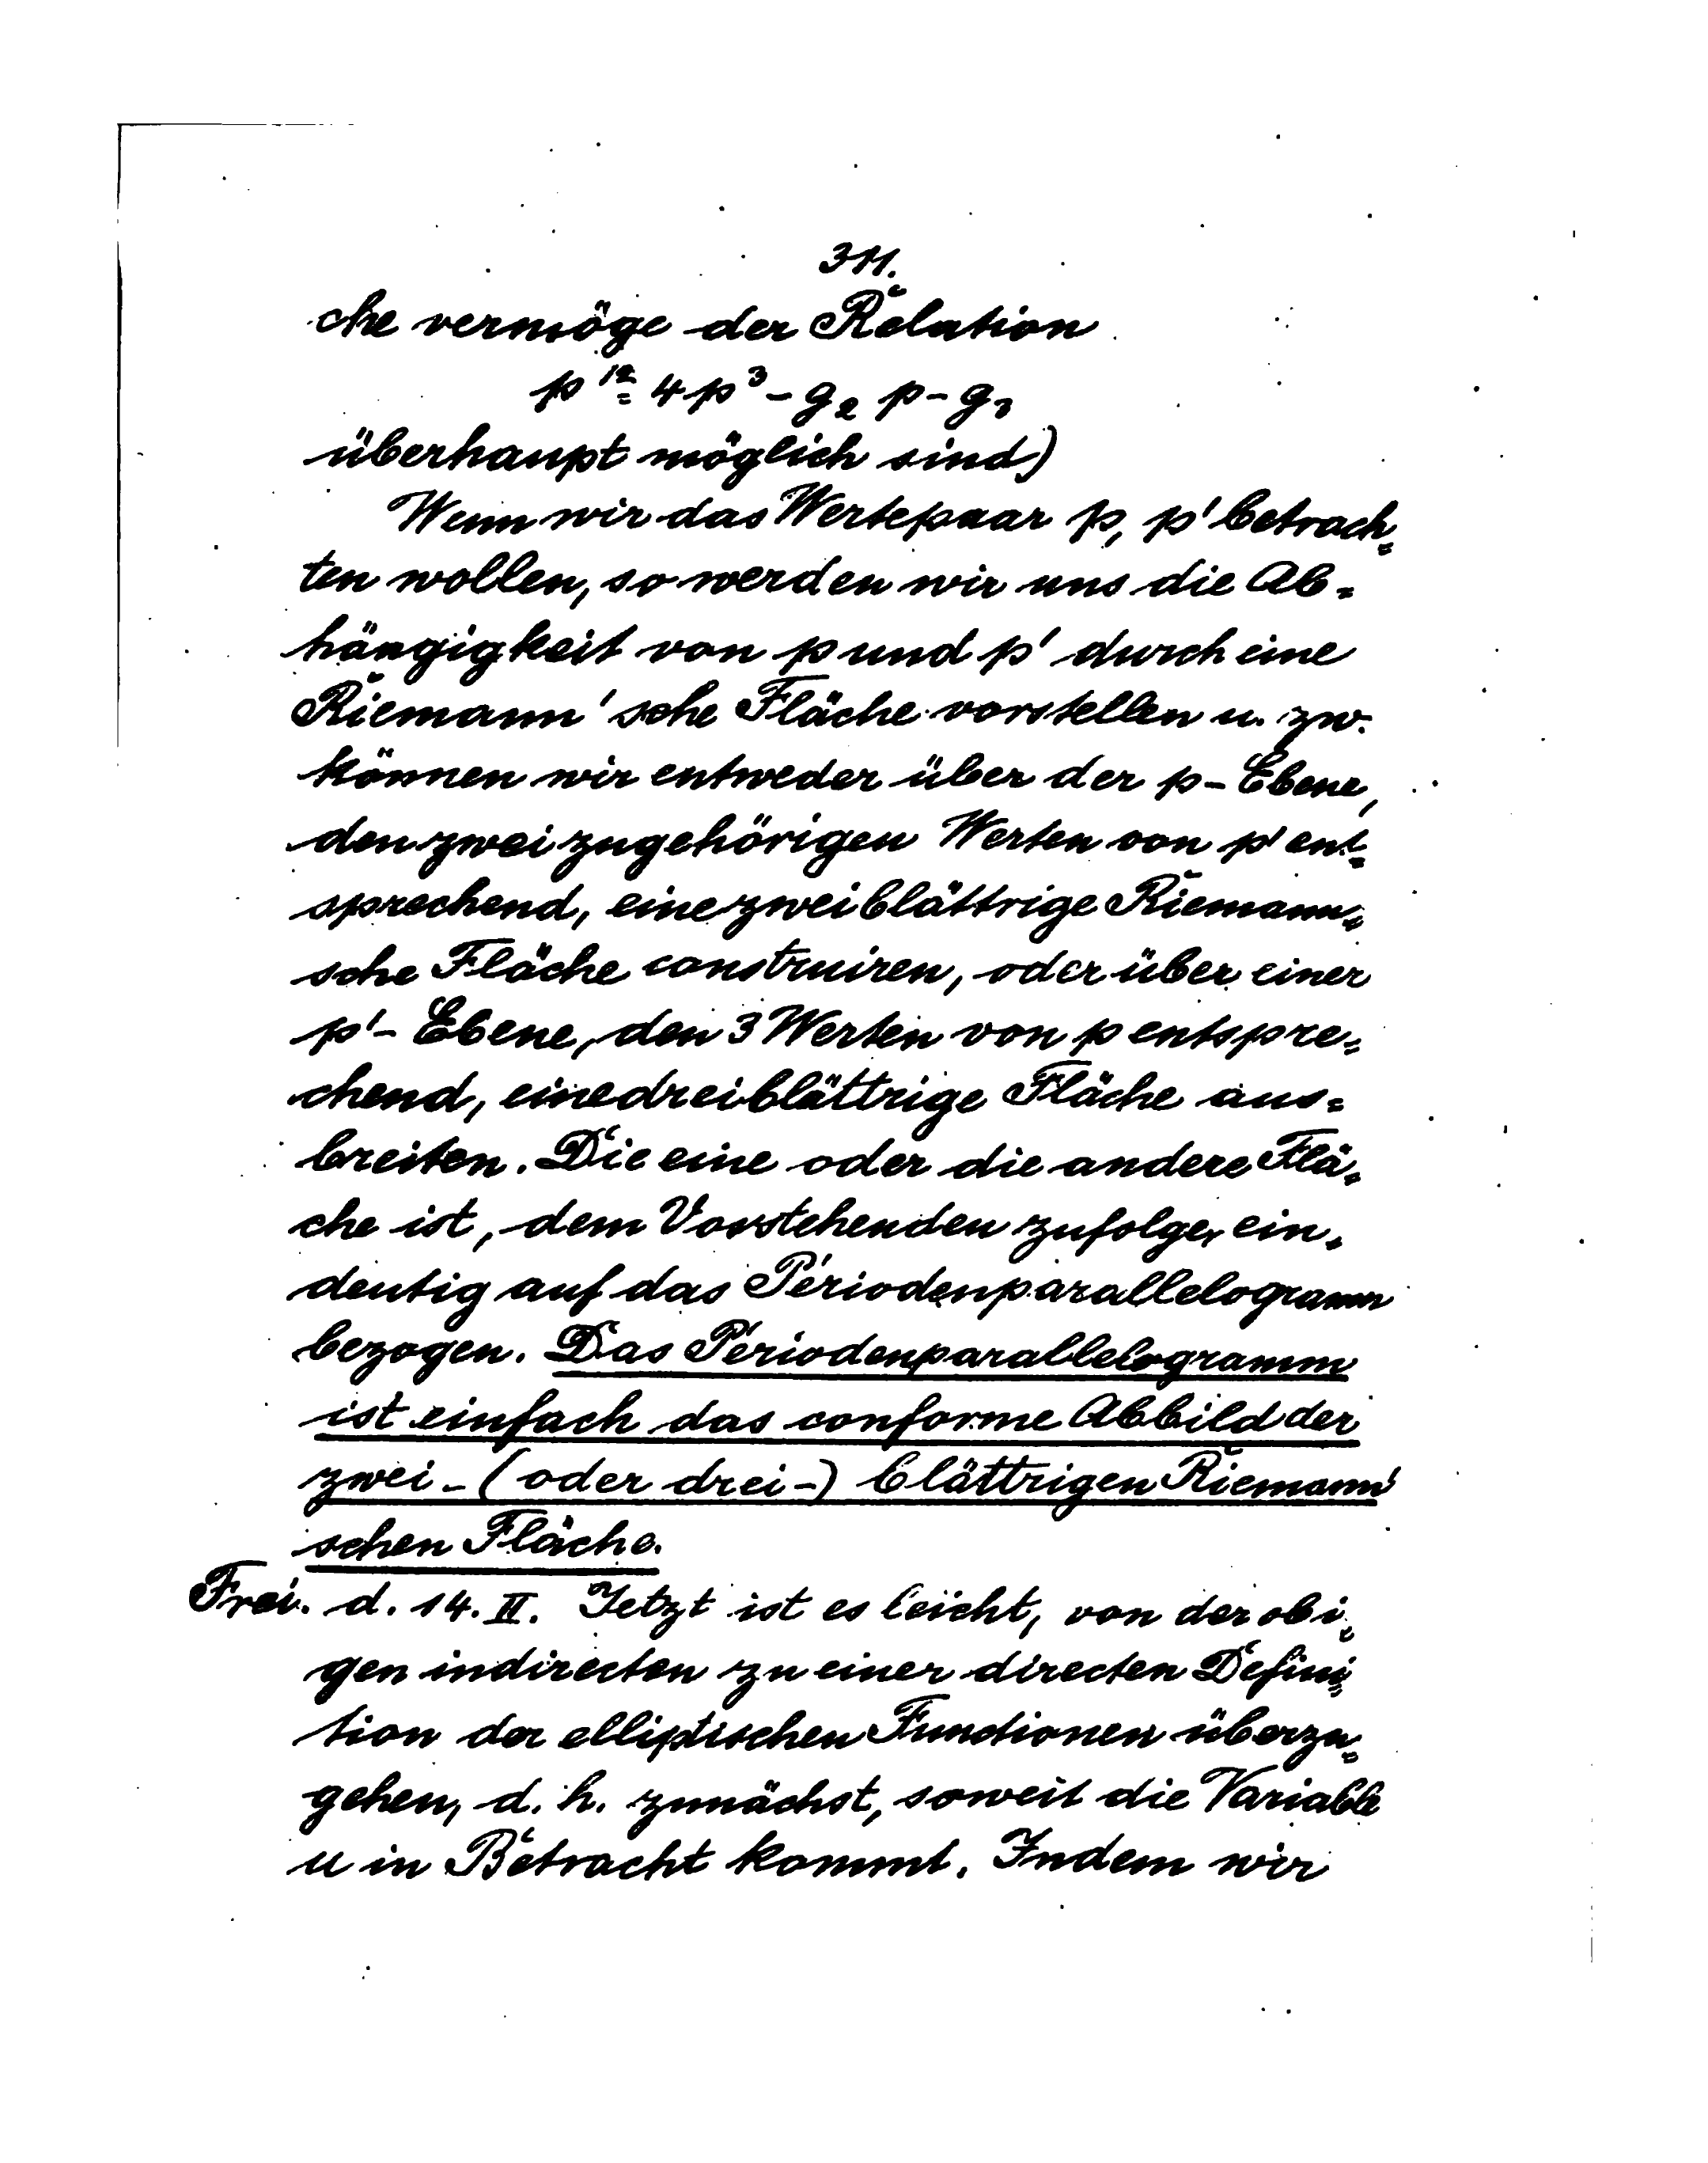 311.
che vermöge der Relation
p'² = 4p³ - g₂ p - g₃
überhaupt möglich sind)
Wenn wir das Wertepaar p, p' betrach=
ten wollen, so werden wir uns die Ab=
hängigkeit von p und p' durch eine
Riemann'sche Fläche vorstellen u. zw.
können wir entweder über der p-Ebene,
den zwei zugehörigen Werten von p' ent=
sprechend, eine zweiblättrige Riemann=
sche Fläche construiren, oder über einer
p'-Ebene, den 3 Werten von p entspre=
chend, eine dreiblättrige Fläche aus=
breiten. Die eine oder die andere Flä=
che ist, dem Vorstehenden zufolge, ein=
deutig auf das Periodenparallelogramm
bezogen. Das Periodenparallelogramm
ist einfach das conforme Abbild der
zwei-(oder drei-) blättrigen Riemann'
schen Fläche.
Frei. d. 14. II. Jetzt ist es leicht, von der obi=
gen indirecten zu einer directen Defini=
tion der elliptischen Functionen überzu=
gehen, d. h. zunächst, soweit die Variable
u in Betracht kommt. Indem wir